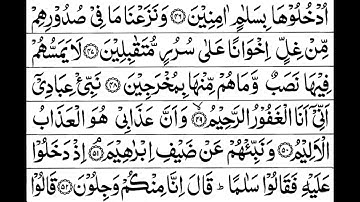 اُدۡخُلُوۡهَا بِسَلٰمٍ اٰمِنِيۡنَ ﴿۴۶﴾ وَنَزَعۡنَا مَا فِىۡ صُدُوۡرِهِمۡ
مِّنۡ غِلٍّ اِخۡوَانًا عَلٰى سُرُرٍ مُّتَقٰبِلِيۡنَ ﴿۴۷﴾ لَا يَمَسُّهُمۡ
فِيۡهَا نَصَبٌ وَّمَا هُمۡ مِّنۡهَا بِمُخۡرَجِيۡنَ ﴿۴۸﴾ نَبِّئۡ عِبَادِىۡۤ
اَنِّىۡۤ اَنَا الۡغَفُوۡرُ الرَّحِيۡمُ ﴿۴۹﴾ وَاَنَّ عَذَابِىۡ هُوَ الۡعَذَابُ
الۡاَلِيۡمُ ﴿۵۰﴾ وَنَبِّئۡهُمۡ عَنۡ ضَيۡفِ اِبۡرٰهِيۡمَ ﴿۵۱﴾ اِذۡ دَخَلُوۡا
عَلَيۡهِ فَقَالُوۡا سَلٰمًا ؕ قَالَ اِنَّا مِنۡكُمۡ وَجِلُوۡنَ ﴿۵۲﴾ قَالُوۡا